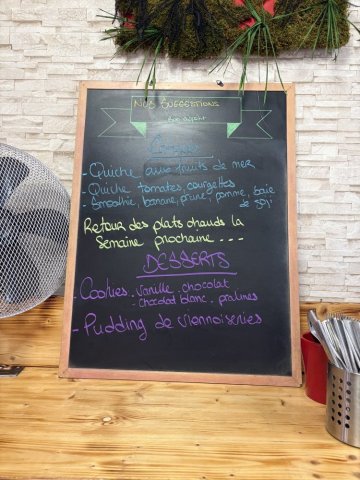 Nos Suggestions
Bon appétit
- Quiche aux fruits de mer
- Quiche tomates, courgettes
- Smoothie, banane, prune, pomme, baie
de goji
Retour des plats chauds la
semaine prochaine - - -
DESSERTS
- Cookies. vanille. chocolat
- chocolat blanc. pralines
- Pudding de viennoiseries